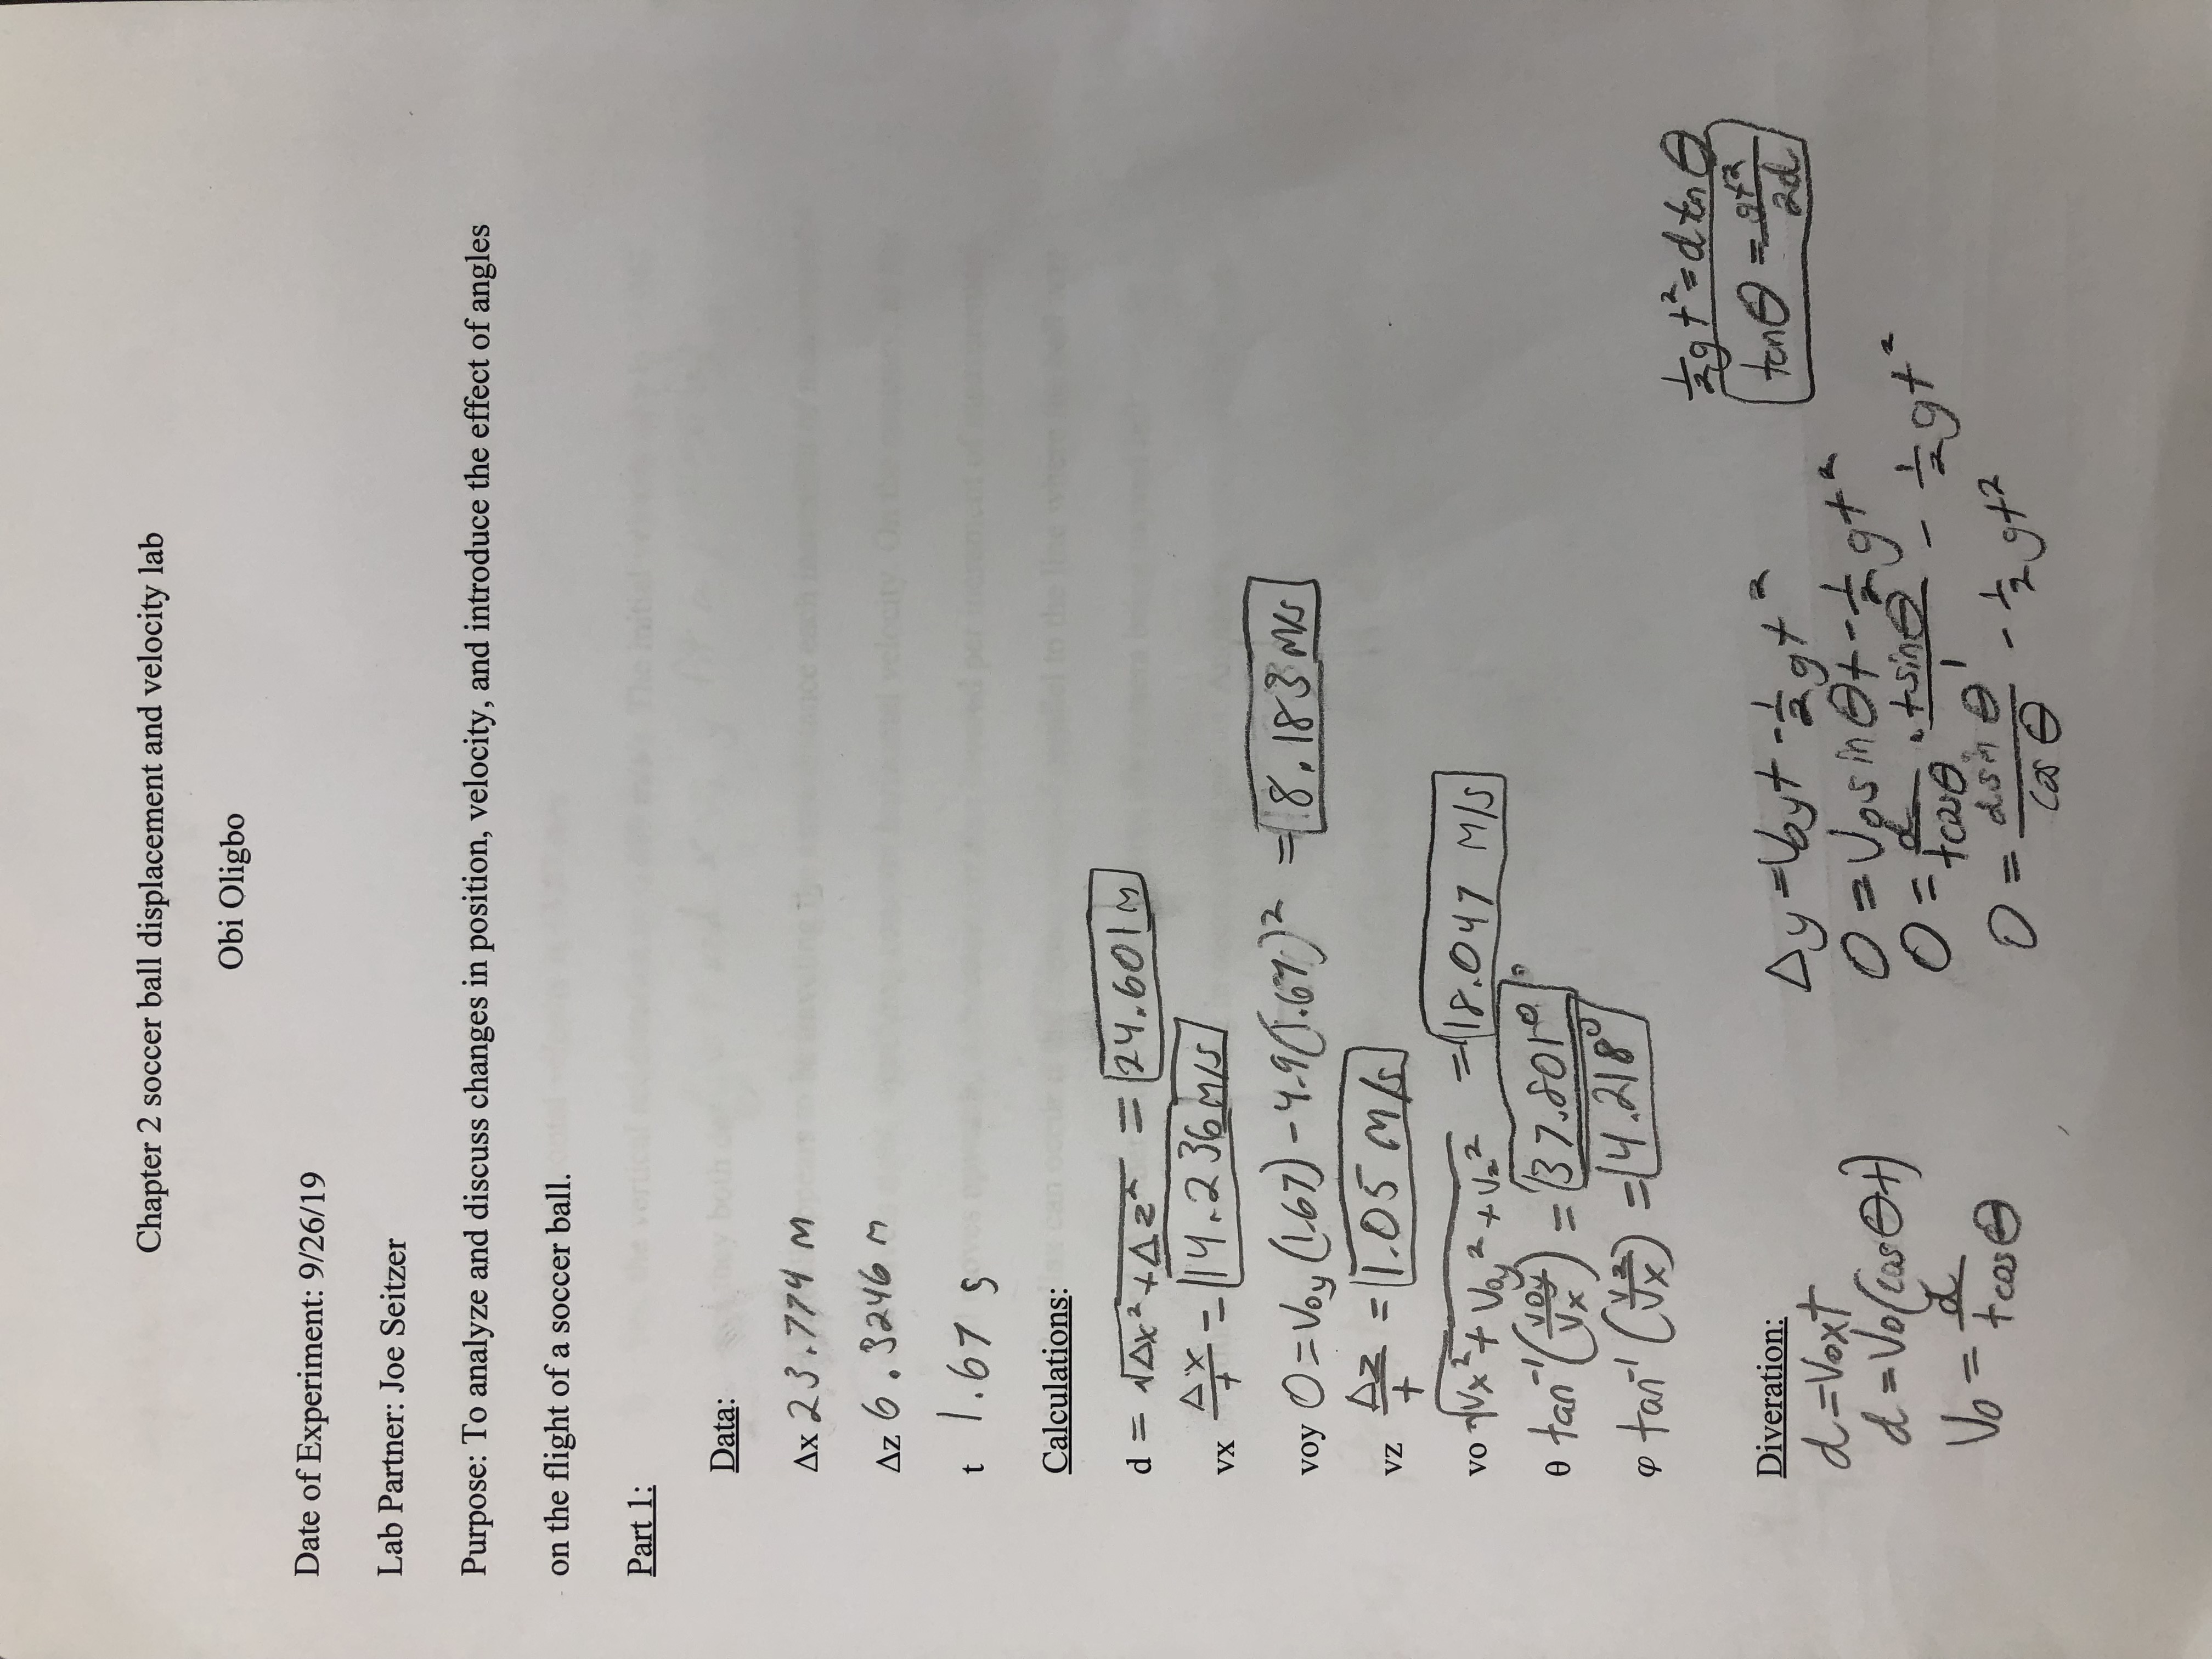 Chapter 2 soccer ball displacement and velocity lab
Obi Oligbo
Date of Experiment: 9/26/19
Lab Partner: Joe Seitzer
Purpose: To analyze and discuss changes in position, velocity, and introduce the effect of angles
on the flight of a soccer ball.
Part 1:
Data:
Δx 23.774 m
Δz 6.3246 m
t 1.67 s
Calculations:
d = √Δx²+Δz² = 24.601 m
vx Δx/t = 14.236 m/s
voy 0=Voy(1.67)-4.9(1.67)² = 8.183 m/s
vz Δz/t = 1.05 m/s
vo √Vx²+Voy²+Vz² = 18.047 m/s
θ tan⁻¹(voy/vx) = 37.801°
φ tan⁻¹(vz/vx) = 4.218°
½gt²=d tn θ
tanθ = gt²/2d
Diveration:
d=Voxt
d=Vo(cosθt)
Vo = d/tcosθ
Δy=Voyt-½gt²
0=Vosinθt-½gt²
0 = d/tcosθ · tsinθ/1 - ½gt²
0 = dsinθ/cosθ - ½gt²